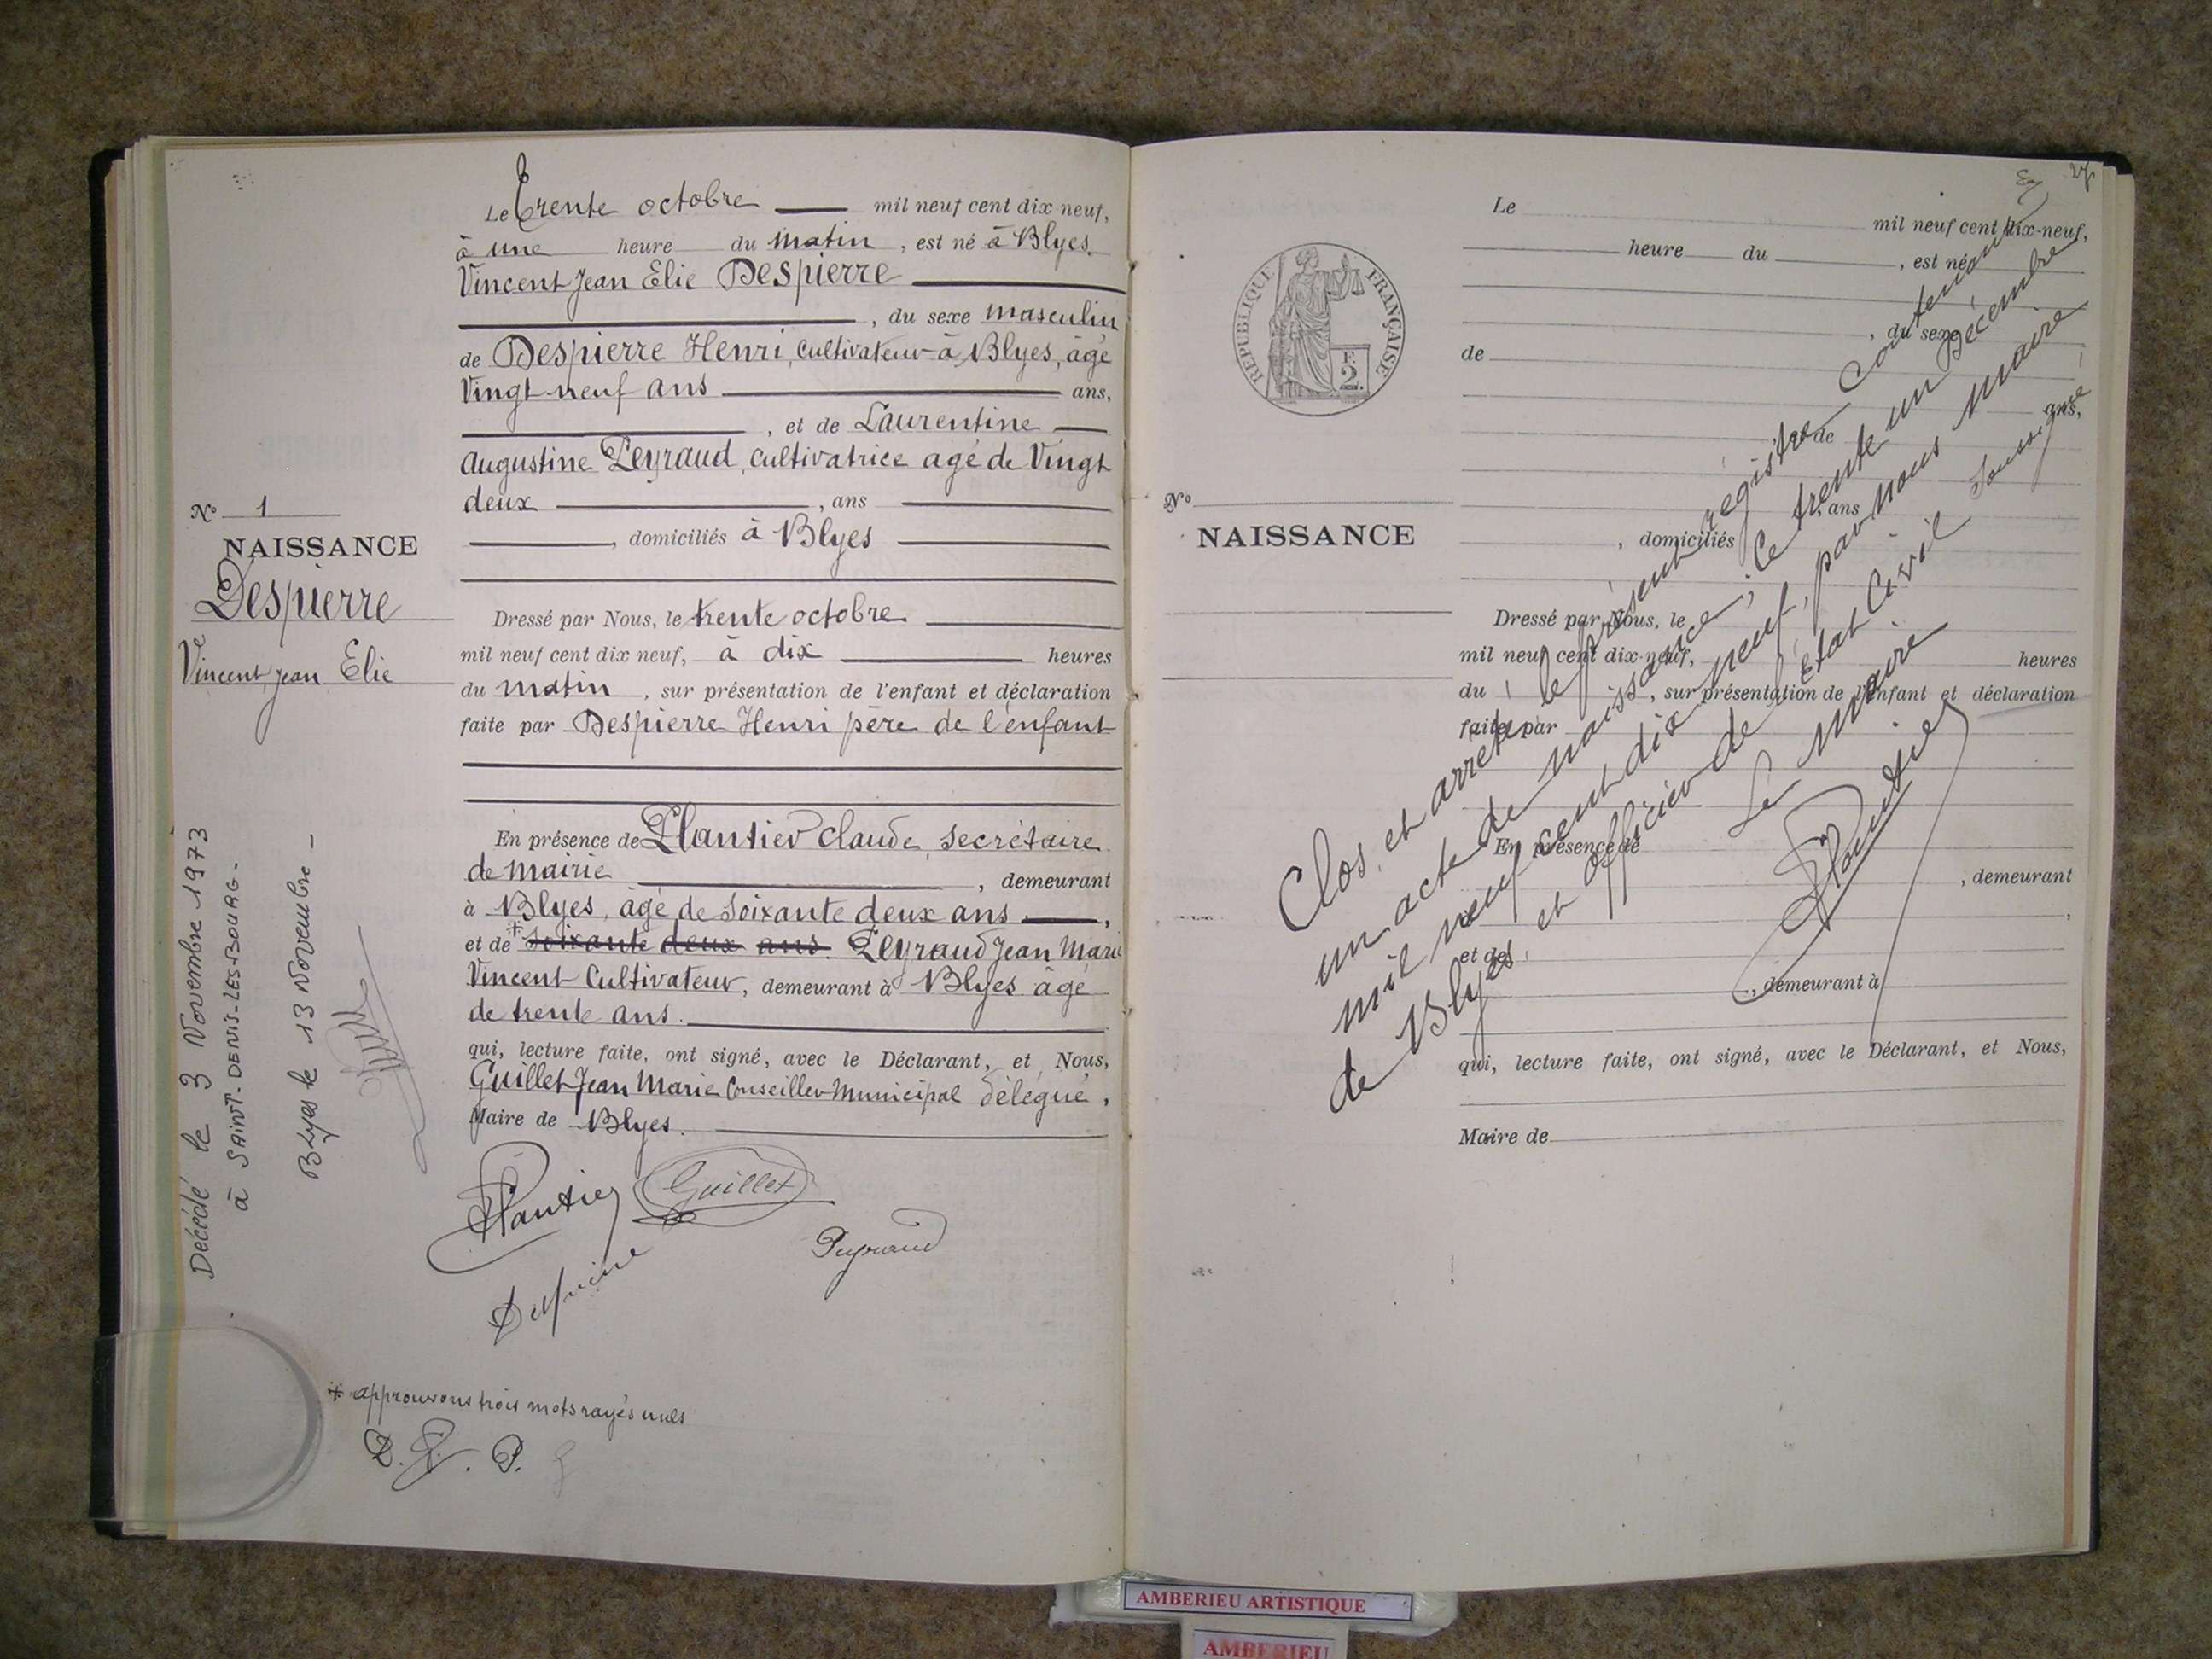 Le trente octobre mil neuf cent dix-neuf,
à une heure du matin, est né à Blyes.
Vincent Jean Elie Despierre
, du sexe masculin
de Despierre Henri, cultivateur à Blyes, âgé
Vingt-neuf ans ans,
, et de Laurentine
Augustine Peyraud, cultivatrice agé de Vingt
deux , ans
, domiciliés à Blyes
Dressé par Nous, le trente octobre
mil neuf cent dix neuf, à dix heures
du matin, sur présentation de l'enfant et déclaration
faite par Despierre Henri père de l'enfant
En présence de Plantier Claude, secrétaire
de mairie , demeurant
à Blyes, âgé de soixante deux ans ,
et de + soixante deux ans. Peyraud Jean Marie
Vincent Cultivateur, demeurant à Blyes âgé
de trente ans.
qui, lecture faite, ont signé, avec le Déclarant, et Nous,
Guillet Jean Marie Conseiller Municipal délégué,
Maire de Blyes.
Plantier Guillet
Peyraud
Despierre
+ approuvons trois mots rayés nuls
D. P. P. G
N° 1
NAISSANCE
Despierre
Vincent Jean Elie
Décédé le 3 Novembre 1973
à SAINT-DENIS-LES-BOURG-
Blyes le 13 Novembre -
27
RÉPUBLIQUE FRANÇAISE
E.
2.
N°
NAISSANCE
Le mil neuf cent dix-neuf,
heure du , est né
, du sexe
de
ans,
et de
, ans
, domiciliés
Dressé par Nous, le
mil neuf cent dix-neuf, heures
du , sur présentation de l'enfant et déclaration
faite par
En présence de
, demeurant
,
et de
, demeurant à
qui, lecture faite, ont signé, avec le Déclarant, et Nous,
Maire de
Clos, et arrêté le présent registre contenant
un acte de naissance, ce trente un Décembre
mil neuf cent dix neuf, par nous Maire
de Blyes et officier de l'Etat Civil soussigné
Le Maire
Plantier
AMBERIEU ARTISTIQUE
AMBERIEU